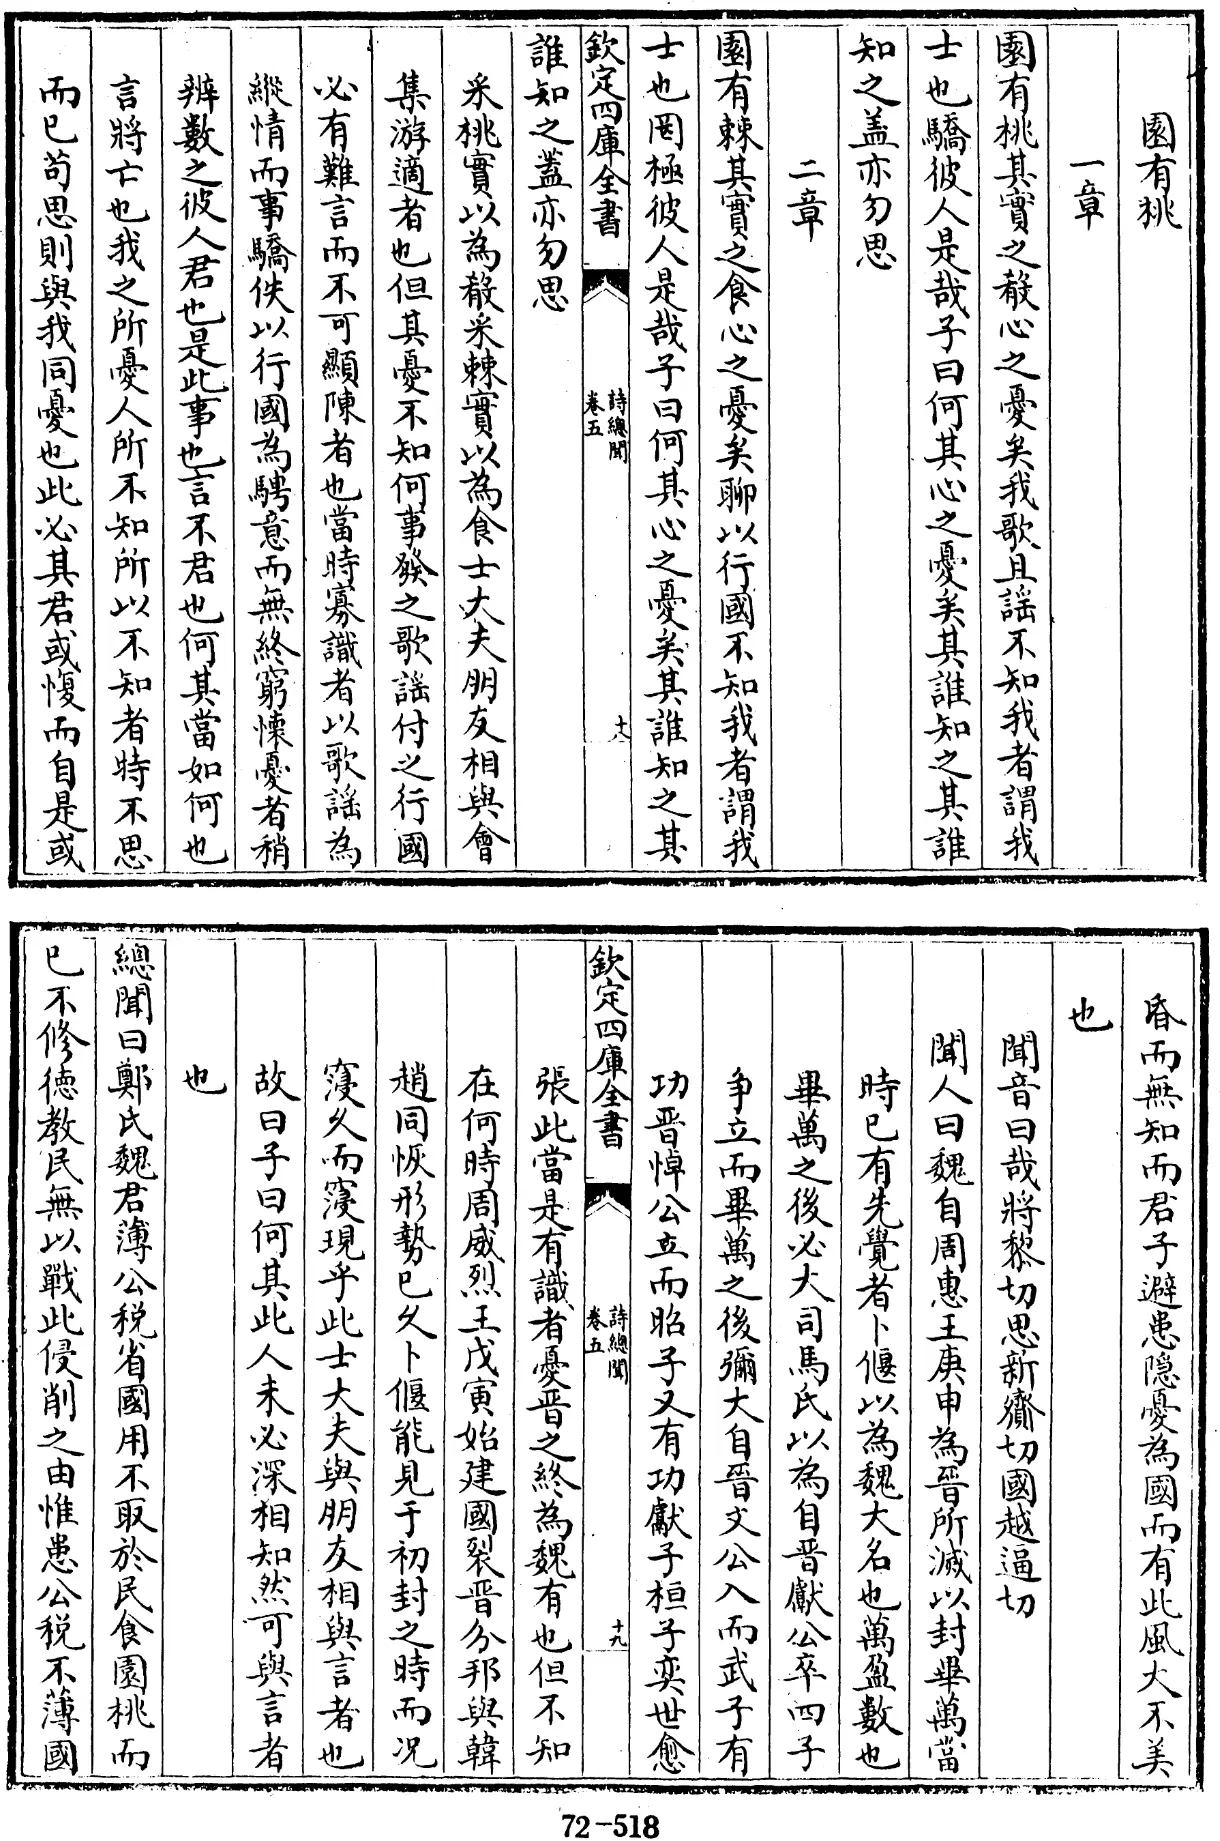 園有桃
一章
園有桃其實之殽心之憂矣我歌且謡不知我者謂我
士也驕彼人是哉子曰何其心之憂矣其誰知之其誰
知之盖亦勿思
二章
園有棘其實之食心之憂矣聊以行國不知我者謂我
士也罔極彼人是哉子曰何其心之憂矣其誰知之其
欽定四庫全書
詩總聞
卷五
十八
誰知之蓋亦勿思
采桃實以為殽采棘實以為食士大夫朋友相與會
集游適者也但其憂不知何事發之歌謡付之行國
必有難言而不可顯陳者也當時寡識者以歌謡為
縱情而事驕佚以行國為騁意而無終窮懐憂者稍
辨數之彼人君也是此事也言不君也何其當如何也
言將亡也我之所憂人所不知所以不知者特不思
而已苟思則與我同憂也此必其君或愎而自是或
昏而無知而君子避患隠憂為國而有此風大不美
也
聞音曰哉將黎切思新齎切國越逼切
聞人曰魏自周惠王庚申為晉所滅以封畢萬當
時已有先覺者卜偃以為魏大名也萬盈數也
畢萬之後必大司馬氏以為自晋獻公卒四子
争立而畢萬之後彌大自晉文公入而武子有
功晋悼公立而昭子又有功獻子桓子奕世愈
欽定四庫全書
詩總聞
卷五
十九
張此當是有識者憂晋之終為魏有也但不知
在何時周威烈王戊寅始建國裂晋分邦與韓
趙同恢形勢已久卜偃能見于初封之時而况
寖久而寖現乎此士大夫與朋友相與言者也
故曰子曰何其此人未必深相知然可與言者
也
總聞曰鄭氏魏君薄公税省國用不取於民食園桃而
已不修徳教民無以戰此侵削之由惟患公税不薄國
72-518